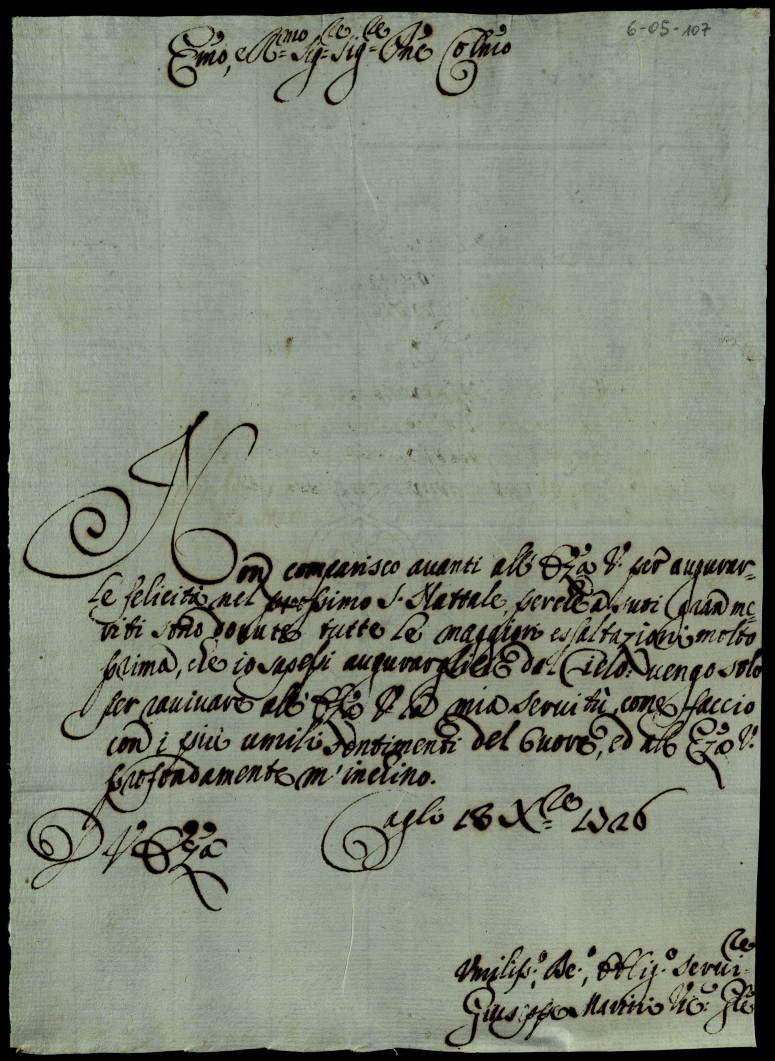 6-05-107
Emo, e Rmo Sig.re Sig.re Pne Colmo
Non comparisco avanti all' Eza V. per augurar-
le felicità nel prossimo S. Nattale, perche a suoi gran me-
riti sono dovute tutte le maggiori essaltazioni molto
prima, che io sapessi augurargliele dal Cielo: vengo solo
per ravivare all' Eza V. la mia servitù, come faccio
con i più umili sentimenti del Cuore, ed all' Eza V.
profondamente m'inclino.
D V. Eza
Cagli 18 Xbre 1726
Umiliss.o, De.o, Obblig.o Servi.re
Giuseppe Martini Vic.o Gle